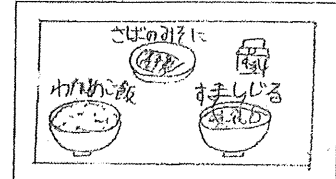 さばのみそに
わかめご飯
すましじる